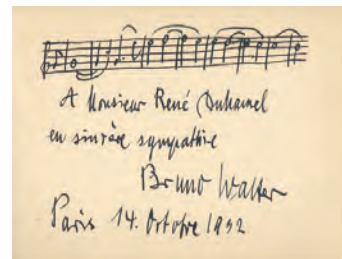 A Monsieur René Duhamel
en sincère sympathie
Bruno Walter
Paris 14. Octobre 1932